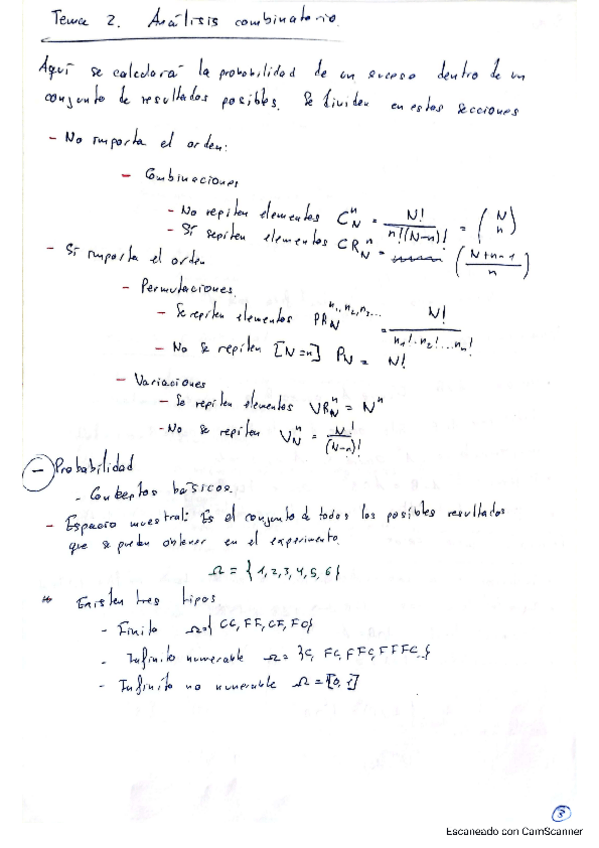 Tema 2. Análisis combinatorio.
Aquí se calculará la probabilidad de un suceso dentro de un
conjunto de resultados posibles. Se dividen en estas secciones
- No importa el orden:
- Combinaciones
- No repiten elementos C_N^n = N!/(n!(N-n)!) = (N n)
- Sí repiten elementos CR_N^n = (N+n-1 / n)
- Sí importa el orden
- Permutaciones
- Se repiten elementos PR_N^{n_1, n_2, n_3...} = N!/(n_1!·n_2!...n_n!)
- No se repiten [N=n] P_N = N!
- Variaciones
- Se repiten elementos VR_N^n = N^n
- No se repiten V_N^n = N!/(N-n)!
- Probabilidad
- Conceptos básicos.
- Espacio muestral: Es el conjunto de todos los posibles resultados
que se puedan obtener en el experimento.
Ω = {1,2,3,4,5,6}
Existen tres tipos
- Finito Ω={CC, FF, CF, FC}
- Infinito numerable Ω = {C, FC, FFC, FFFC..}
- Infinito no numerable Ω = [0,1]
3
Escaneado con CamScanner